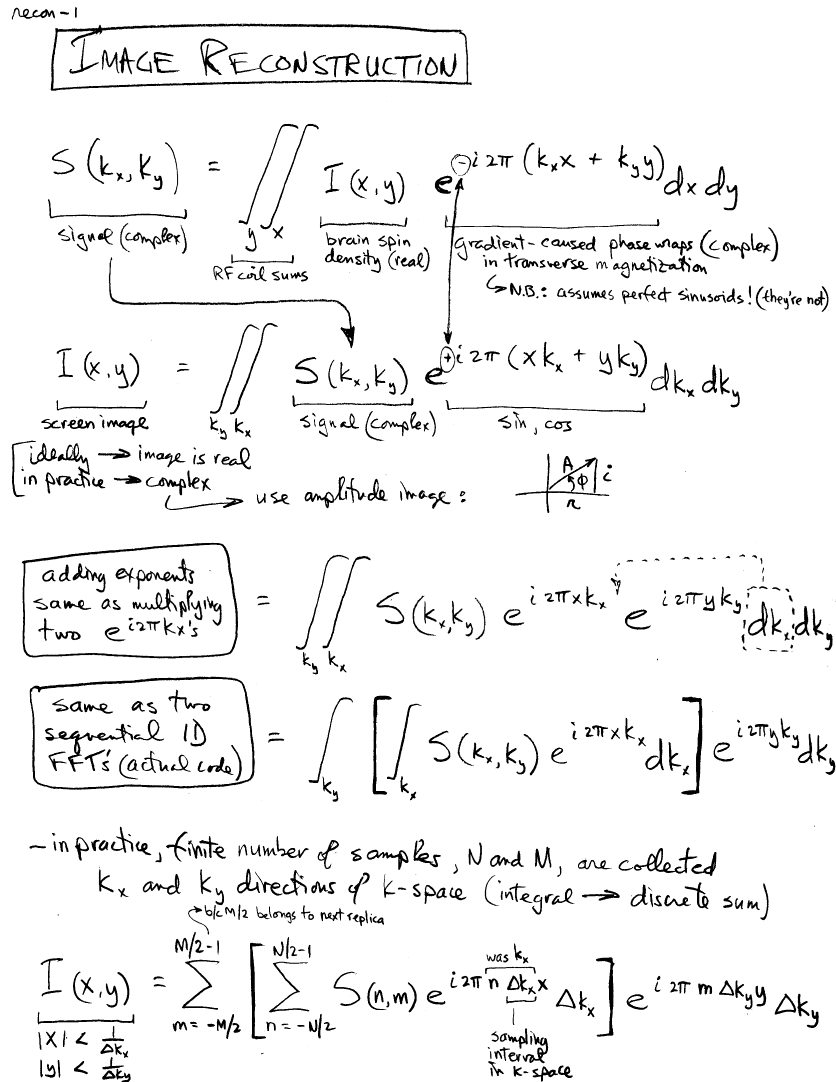 recon-1
IMAGE RECONSTRUCTION
S(kx, ky) = ∫∫ I(x,y) e^-i2π(kxx + kyy) dx dy
signal (complex)
y x
RF coil sums
brain spin
density (real)
gradient-caused phase wraps (complex)
in transverse magnetization
↳ N.B.: assumes perfect sinusoids! (they're not)
I(x,y) = ∫∫ S(kx, ky) e^+i2π(xkx + yky) dkx dky
screen image
ky kx
signal (complex)
sin, cos
ideally → image is real
in practice → complex
↳ use amplitude image:
A φ i
r
adding exponents
same as multiplying
two e^i2πkx's
= ∫∫ S(kx,ky) e^i2πxkx e^i2πyky dkx dky
ky kx
same as two
sequential 1D
FFT's (actual code)
= ∫ [∫ S(kx,ky) e^i2πxkx dkx] e^i2πyky dky
ky kx
– in practice, finite number of samples, N and M, are collected
kx and ky directions of k-space (integral → discrete sum)
b/c M/2 belongs to next replica
M/2-1 N/2-1 was kx
I(x,y) = Σ [Σ S(n,m) e^i2π n Δkx x Δkx] e^i2π m Δky y Δky
m = -M/2 n = -N/2
|x| < 1/Δkx
|y| < 1/Δky
sampling
interval
in k-space